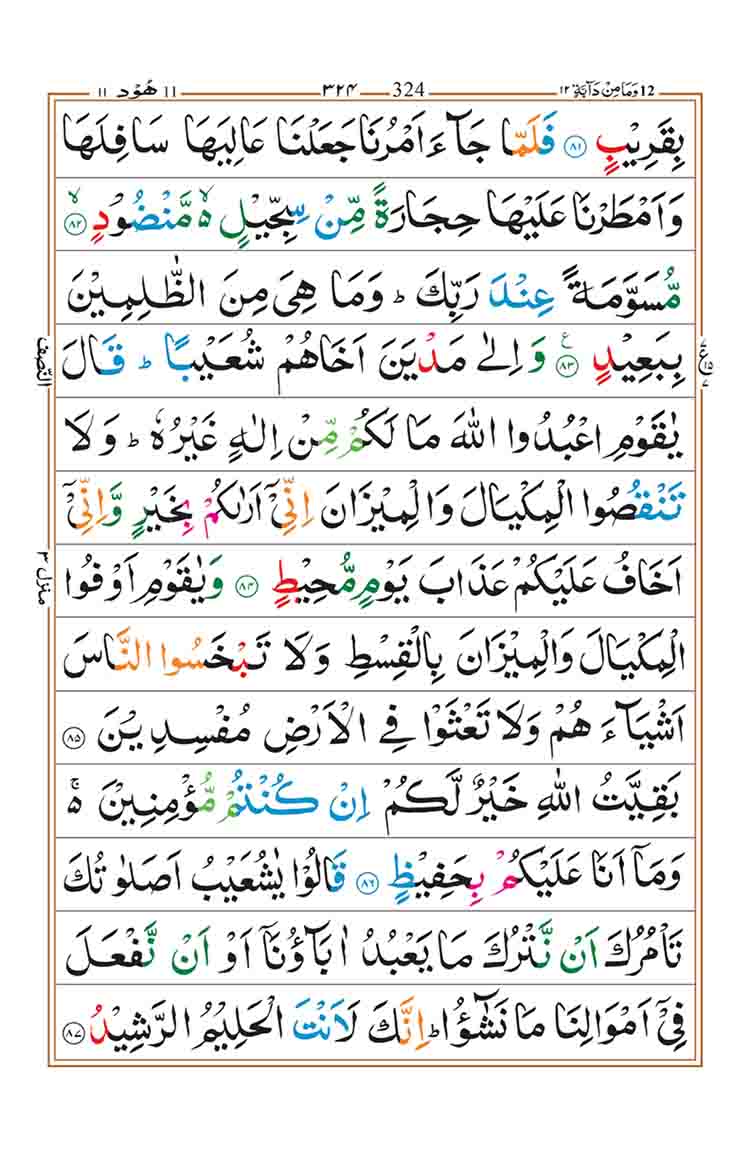 12 وَمَا مِنْ دَآبَّةٍ ١٢ 324 ٣٢٤ 11 هُوْد ١١
بِقَرِيْبٍ ﴿٨١﴾ فَلَمَّا جَآءَ اَمْرُنَا جَعَلْنَا عَالِيَهَا سَافِلَهَا
وَاَمْطَرْنَا عَلَيْهَا حِجَارَةً مِّنْ سِجِّيْلٍ ۙ۬ مَّنْضُوْدٍ ۙ﴿٨٢﴾
مُّسَوَّمَةً عِنْدَ رَبِّكَ ؕ وَمَا هِىَ مِنَ الظّٰلِمِيْنَ
بِبَعِيْدٍ ﴿٨٣﴾ ع وَ اِلٰى مَدْيَنَ اَخَاهُمْ شُعَيْبًا ؕ قَالَ
يٰقَوْمِ اعْبُدُوا اللّٰهَ مَا لَكُمْ مِّنْ اِلٰهٍ غَيْرُهٗ ؕ وَلَا
تَنْقُصُوا الْمِكْيَالَ وَالْمِيْزَانَ اِنِّىْۤ اَرٰىكُمْ بِخَيْرٍ وَّاِنِّىْۤ
اَخَافُ عَلَيْكُمْ عَذَابَ يَوْمٍ مُّحِيْطٍ ﴿٨٤﴾ وَيٰقَوْمِ اَوْفُوا
الْمِكْيَالَ وَالْمِيْزَانَ بِالْقِسْطِ وَلَا تَبْخَسُوا النَّاسَ
اَشْيَآءَ هُمْ وَلَا تَعْثَوْا فِى الْاَرْضِ مُفْسِدِيْنَ ﴿٨٥﴾
بَقِيَّتُ اللّٰهِ خَيْرٌ لَّكُمْ اِنْ كُنْتُمْ مُّؤْمِنِيْنَ ۚ۬
وَمَاۤ اَنَا عَلَيْكُمْ بِحَفِيْظٍ ﴿٨٦﴾ قَالُوْا يٰشُعَيْبُ اَصَلٰوتُكَ
تَاْمُرُكَ اَنْ نَّتْرُكَ مَا يَعْبُدُ اٰبَآؤُنَاۤ اَوْ اَنْ نَّفْعَلَ
فِىْۤ اَمْوَالِنَا مَا نَشٰٓؤُا ؕ اِنَّكَ لَاَنْتَ الْحَلِيْمُ الرَّشِيْدُ ﴿٨٧﴾
النّصف
منزل ٣